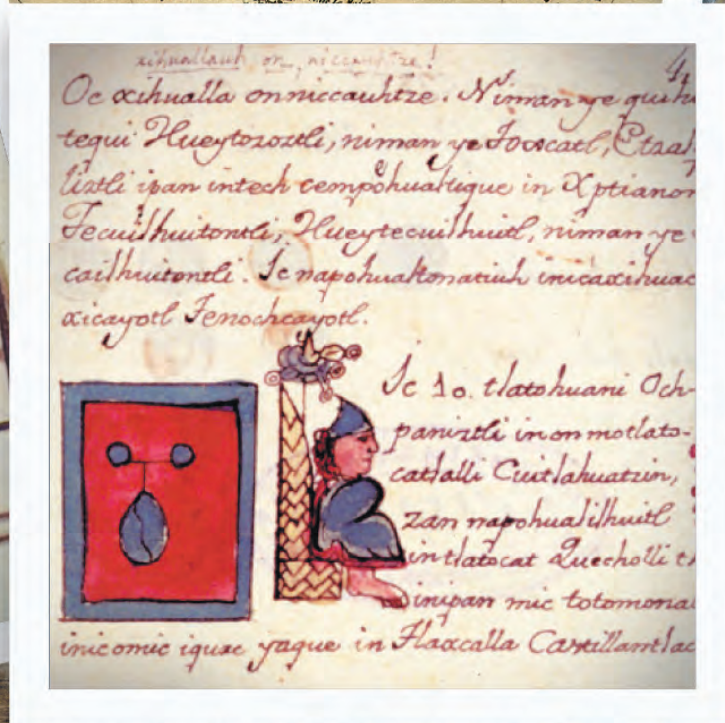 xihuallauh on, niccauhtze!
4
Oc xihualla onniccauhtze. Niman ye quih
tequi Hueytozoztli, niman ye Toxcatl, Etzal
liztli ipan intech cempohualtique in Xptianor
Tecuilhuitontli, Hueytecuilhuitl, niman ye
cailhuitontli. Ic napohualtonatiuh inicaxihuac
xicayotl Tenochcayotl.
Ic 10. tlatohuani Och-
paniztli inonmotlato-
catlalli Cuitlahuatzin,
zan napohualilhuitl
intlatocat Quecholli t
inipan mic totomona
inicomic iquac yaque in Tlaxcalla Castillantlac